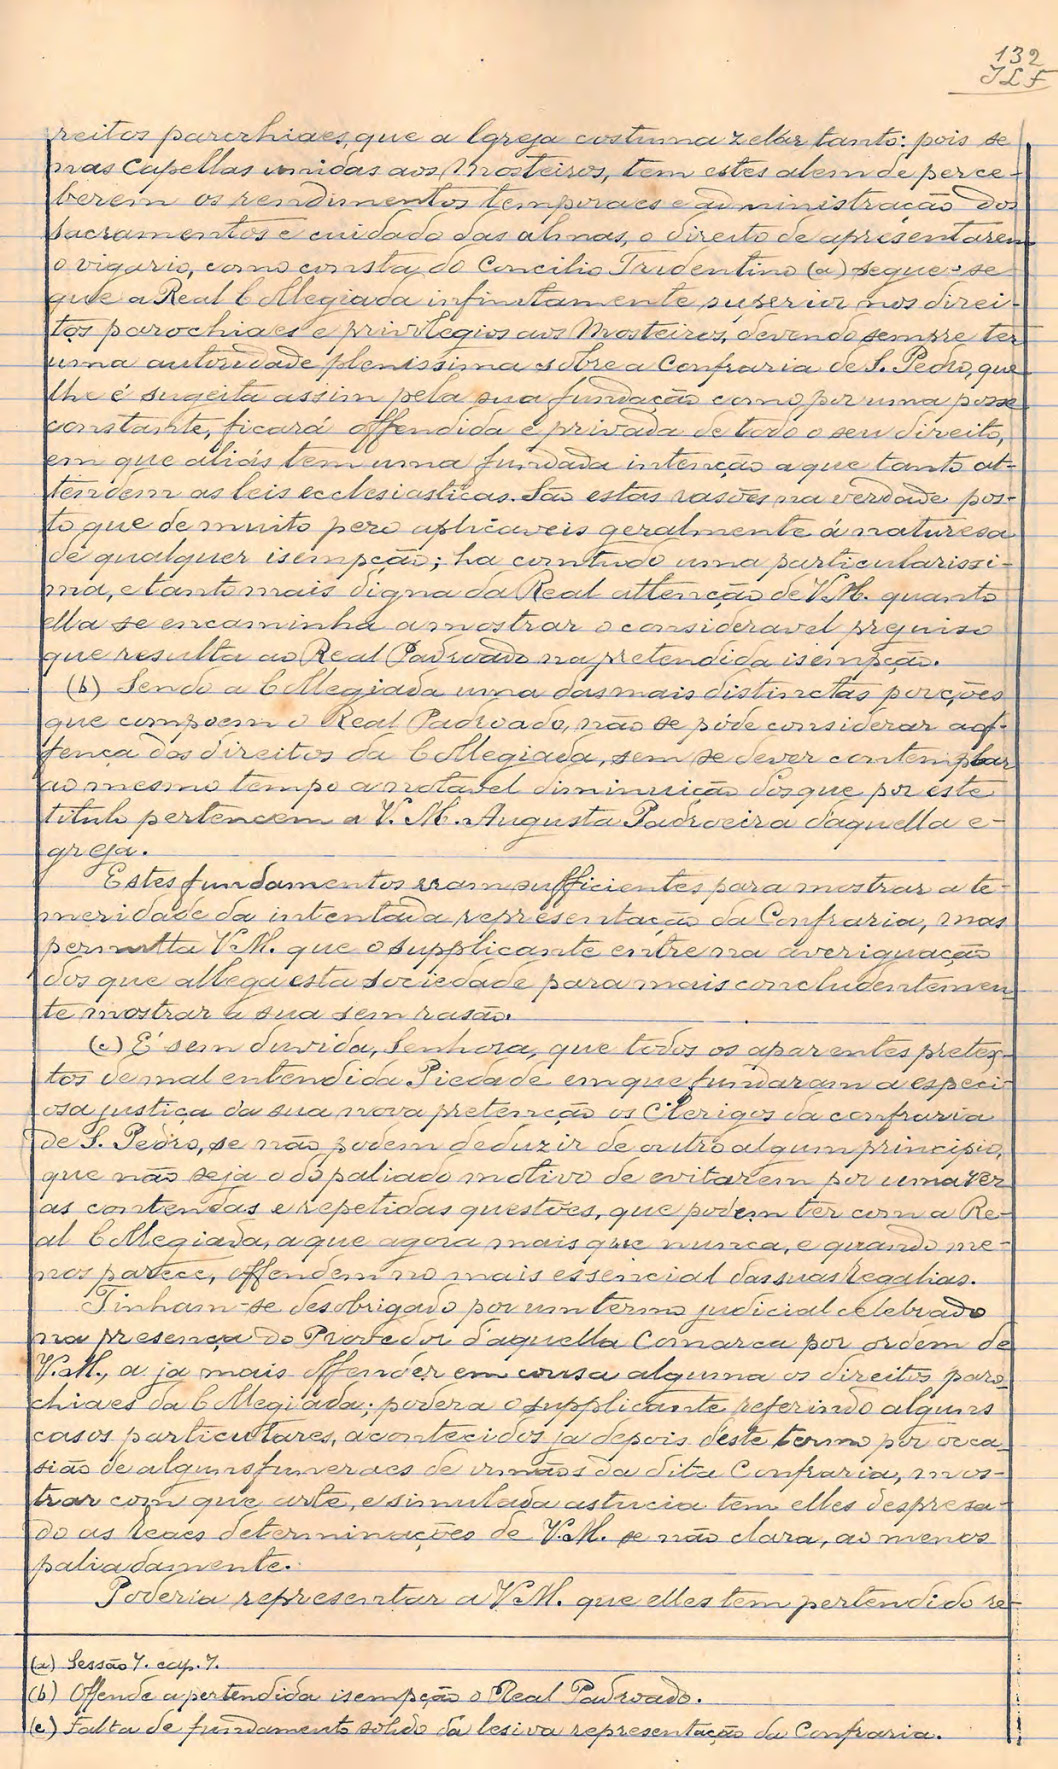 132
JLF
reitos parochiaes, que a Igreja costuma zelar tanto: pois se
nas Capellas unidas aos Mosteiros, tem estes alem de perce-
berem os rendimentos temporaes e administração dos
Sacramentos e cuidado das almas, o direito de apresentarem
o vigario, como consta, do Concilio Tridentino (a) segue-se
que a Real Collegiada infinitamente superior nos direi-
tos parochiaes e privilegios aos Mosteiros, devendo sempre ter
uma autoridade plenissima sobre a Confraria de S. Pedro, que
lhe é sugeita assim pela sua fundação como por uma posse
constante, ficará offendida e privada de todo o seu direito,
em que aliás tem uma fundada intenção a que tanto at-
tendem as leis ecclesiasticas. São estas rasões na verdade pos-
to que de muito pezo aplicaveis geralmente á naturesa
de qualquer isempção; ha comtudo uma particularissi-
ma, e tanto mais digna da Real attenção de V. M. quanto
ella se encaminha a mostrar o consideravel prejuiso
que resulta ao Real Padroado na pretendida isempção.
(b) Sendo a Collegiada uma das mais distinctas porções
que compoem o Real Padroado, não se póde considerar a of-
fença dos direitos da Collegiada, sem se dever contemplar
ao mesmo tempo a notavel diminuição dos que por este
titulo pertencem a V. M. Augusta Padroeira d'aquella e-
greja.
Estes fundamentos eram sufficientes para mostrar a te-
meridade da intentada representação da Confraria, mas
permitta V. M. que o supplicante entre na averiguação
dos que allega esta sociedade para mais concludentemen-
te mostrar a sua sem rasão.
(c) É sem duvida, Senhora, que todos os aparentes pretex-
tos de mal entendida Piedade em que fundaram a especi-
osa justiça da sua nova pretenção os Clerigos da confraria
de S. Pedro, se não podem deduzir de outro algum principio,
que não seja o do paliado motivo de evitarem por uma vez
as contendas e repetidas questões, que podem ter com a Re-
al Collegiada, a que agora mais que nunca, e quando me-
nos parece, offendem no mais essencial das suas Regalias.
Tinham-se desobrigado por um termo judicial celebrado
na presença do Provedor d'aquella Comarca por ordem de
V. M., a ja mais offender em cousa alguma os direitos paro-
chiaes da Collegiada; podera o supplicante referindo alguns
casos particulares, acontecidos ja depois d'este termo por occa-
sião de alguns funeraes de irmãos da dita Confraria, mos-
trar com que arte, e simulada astucia tem elles despresa-
do as Reaes determinações de V. M. se não clara, ao menos
paliadamente.
Poderia representar a V. M. que elles tem pertendido re-
(a) Sessão 7. cap. 7.
(b) Offende a pertendida isempção o Real Padroado.
(c) Falta de fundamento solido da lesiva representação da Confraria.